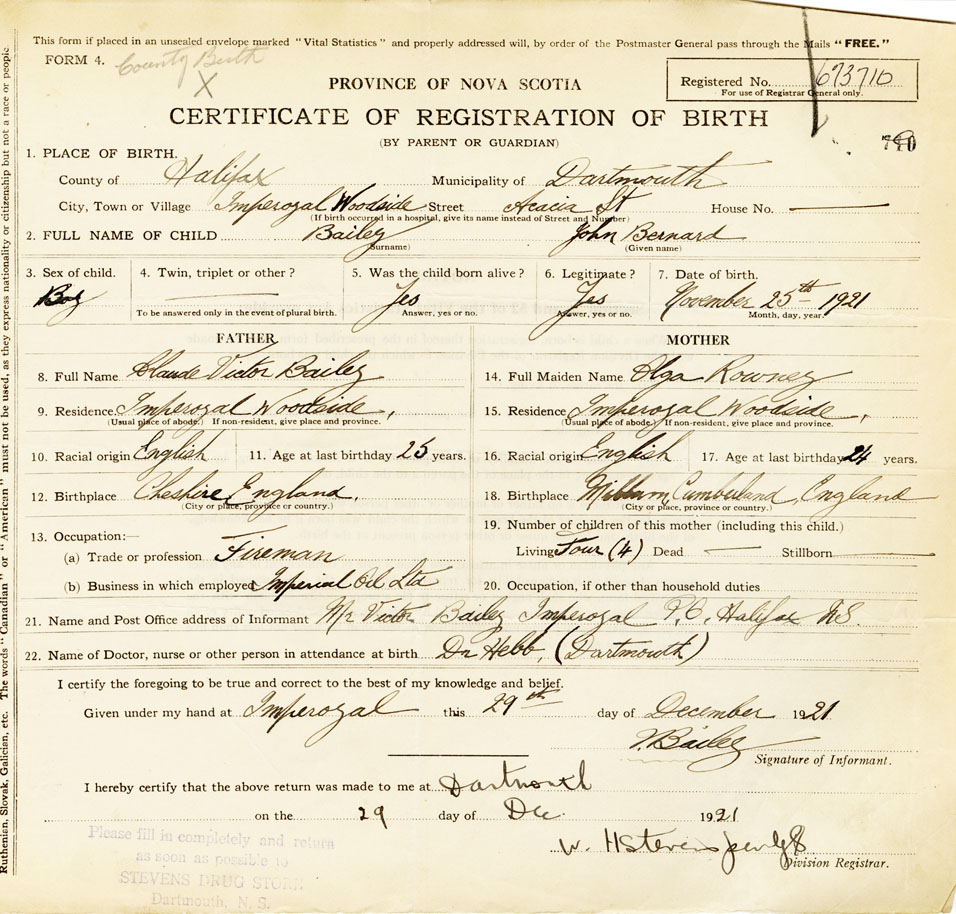 This form if placed in an unsealed envelope marked "Vital Statistics" and properly addressed will, by order of the Postmaster General pass through the Mails "FREE."
FORM 4. County Birth
X
Registered No. 673710
For use of Registrar General only.
PROVINCE OF NOVA SCOTIA
CERTIFICATE OF REGISTRATION OF BIRTH
(BY PARENT OR GUARDIAN)
1. PLACE OF BIRTH.
County of Halifax Municipality of Dartmouth
City, Town or Village Imperoyal Woodside Street Acacia St House No.
(If birth occurred in a hospital, give its name instead of Street and Number)
2. FULL NAME OF CHILD Bailey John Bernard
(Surname) (Given name)
3. Sex of child. 4. Twin, triplet or other? 5. Was the child born alive? 6. Legitimate? 7. Date of birth.
Boy Yes Yes November 25th 1921
To be answered only in the event of plural birth. Answer, yes or no. Answer, yes or no. Month, day, year.
FATHER MOTHER
8. Full Name Claude Victor Bailey 14. Full Maiden Name Olga Rowney
9. Residence Imperoyal Woodside, 15. Residence Imperoyal Woodside,
(Usual place of abode.) If non-resident, give place and province. (Usual place of abode.) If non-resident, give place and province.
10. Racial origin English 11. Age at last birthday 25 years. 16. Racial origin English 17. Age at last birthday 24 years.
12. Birthplace Cheshire, England. 18. Birthplace Millum, Cumberland, England
(City or place, province or country.) (City or place, province or country.)
19. Number of children of this mother (including this child.)
13. Occupation:—
(a) Trade or profession Fireman Living Four (4) Dead — Stillborn —
(b) Business in which employed Imperial Oil Ltd 20. Occupation, if other than household duties
21. Name and Post Office address of Informant Mr Victor Bailey Imperoyal P.O. Halifax N.S.
22. Name of Doctor, nurse or other person in attendance at birth Dr Hebb, (Dartmouth)
I certify the foregoing to be true and correct to the best of my knowledge and belief.
Given under my hand at Imperoyal this 29th day of December 1921
V. Bailey
Signature of Informant.
I hereby certify that the above return was made to me at Dartmouth
on the 29 day of Dec. 1921
W. H Stevens
Division Registrar.
Please fill in completely and return
as soon as possible to
STEVENS DRUG STORE
Dartmouth, N. S.
Ruthenian, Slovak, Galician, etc. The words "Canadian" or "American" must not be used, as they express nationality or citizenship but not a race or people.